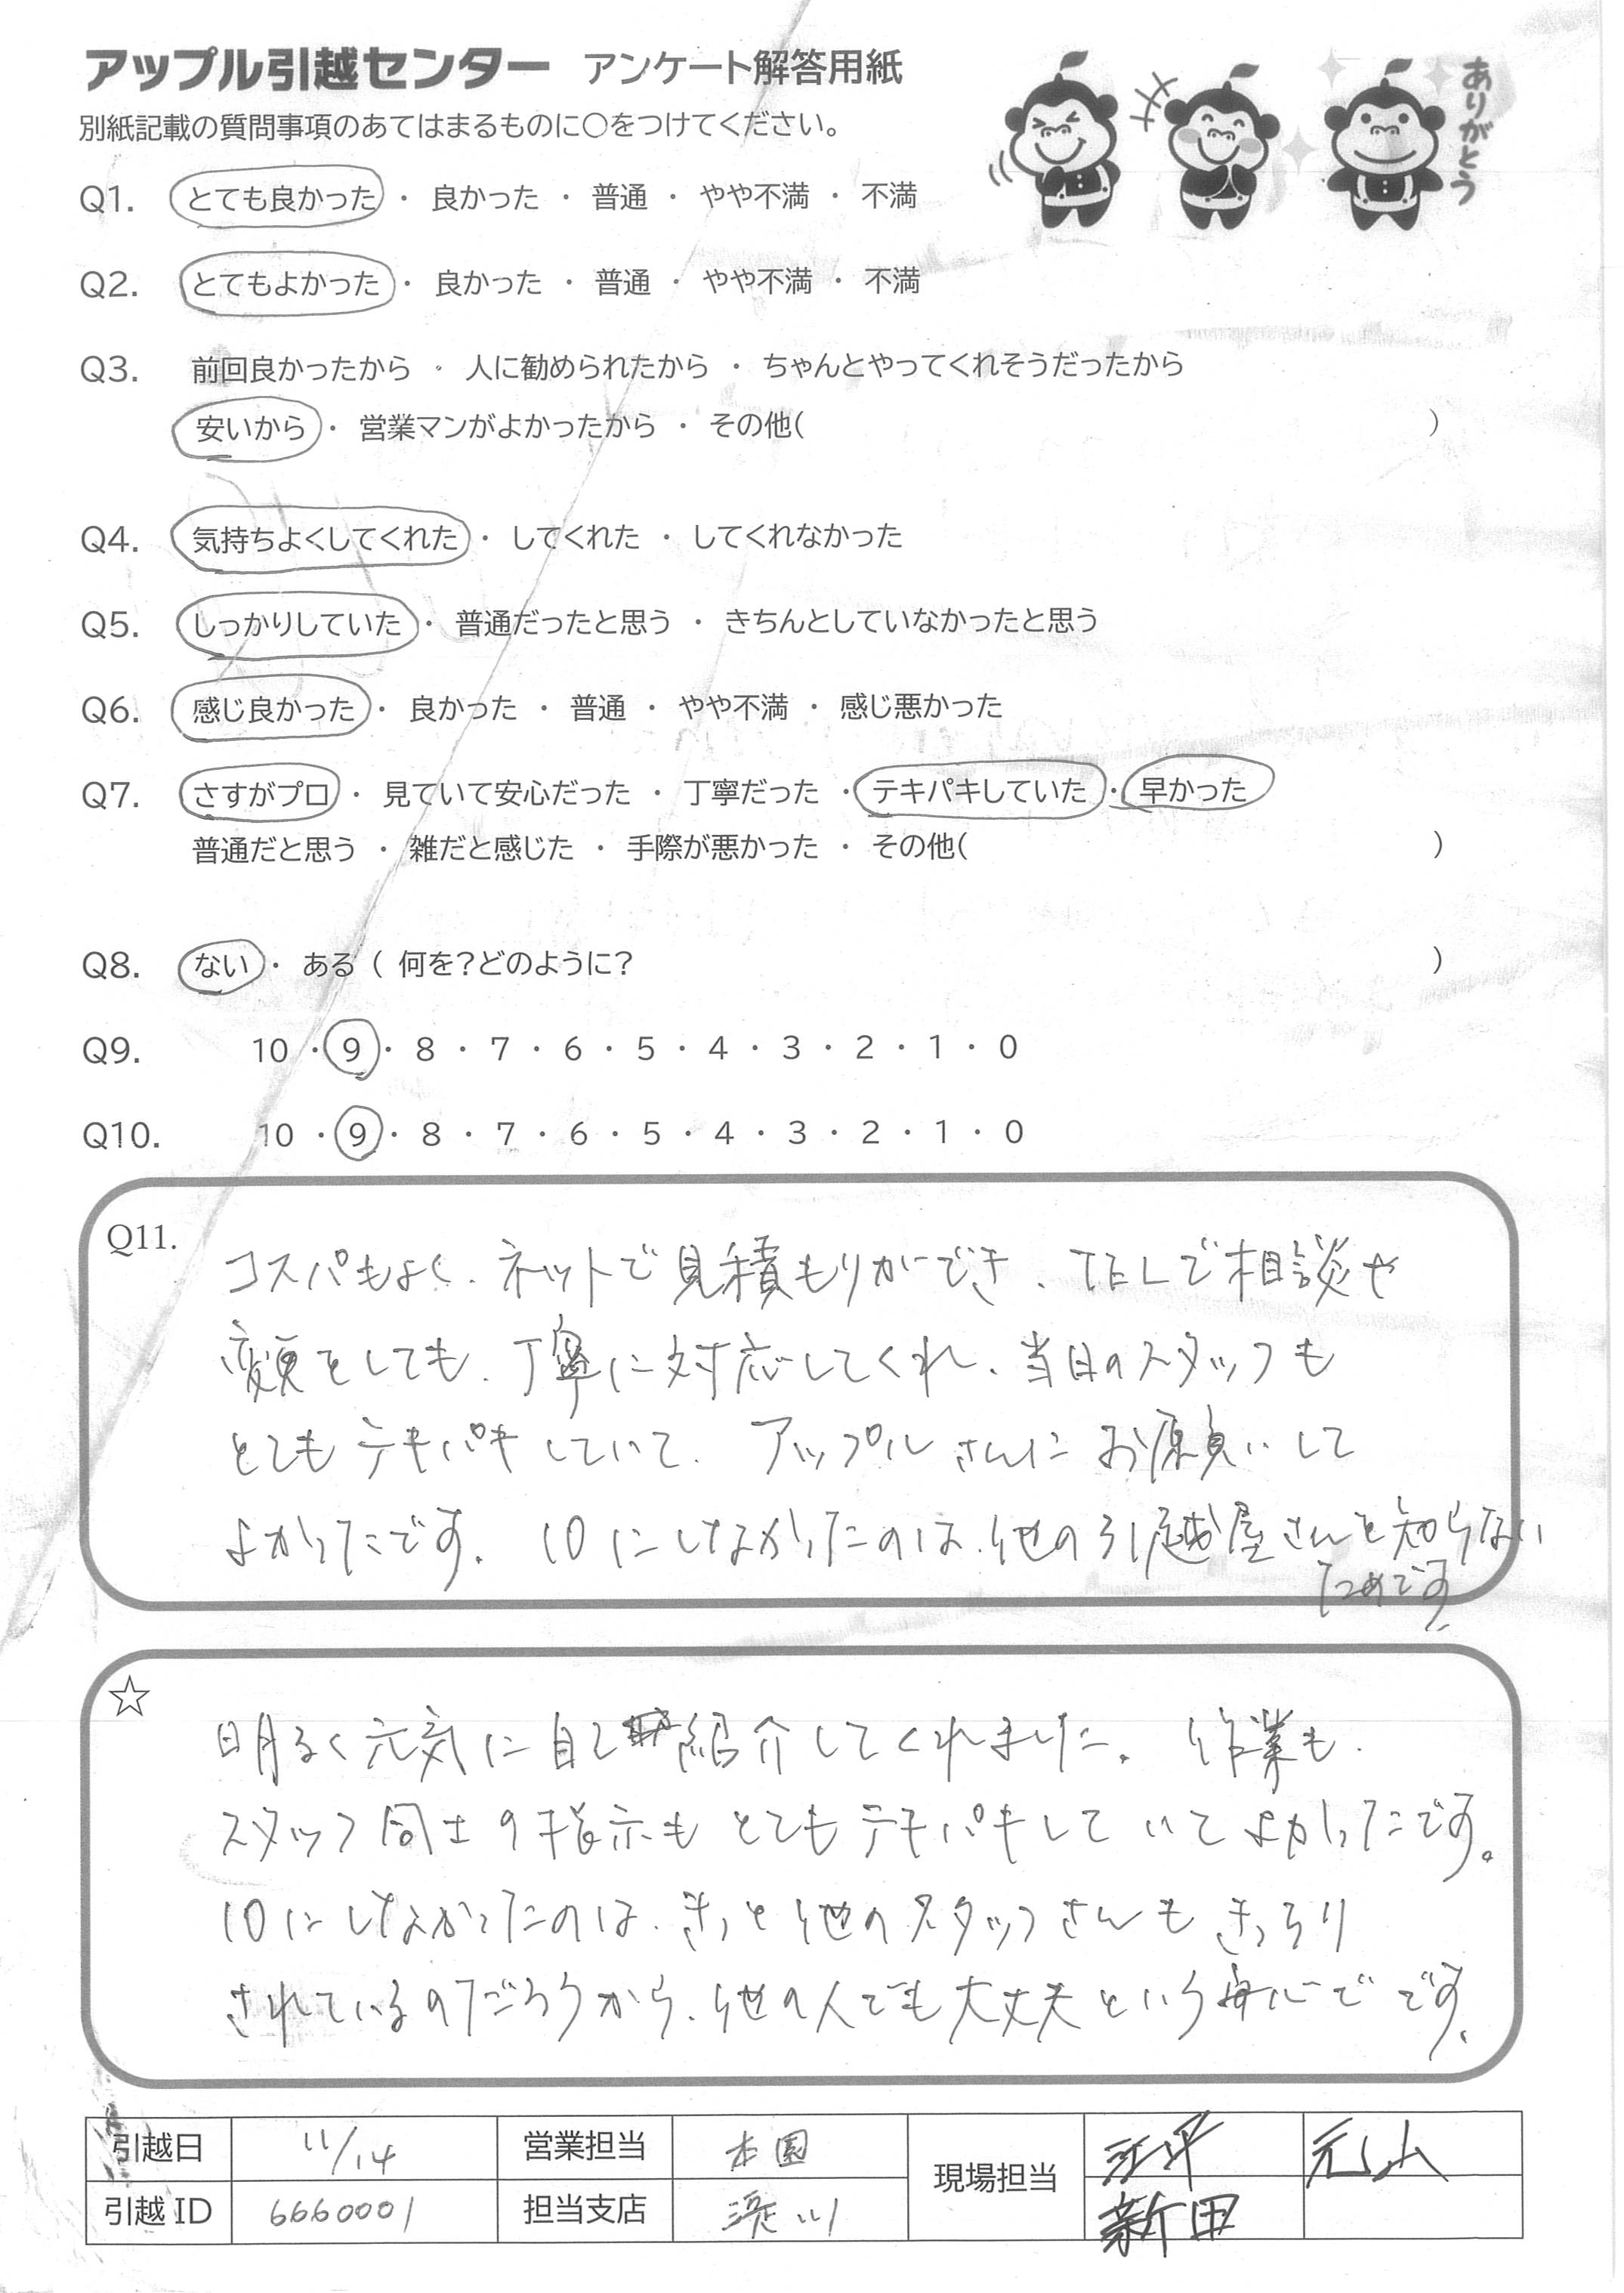 アップル引越センター アンケート解答用紙
ありがとう
別紙記載の質問事項のあてはまるものに○をつけてください。
Q1. とても良かった ・ 良かった ・ 普通 ・ やや不満 ・ 不満
Q2. とてもよかった ・ 良かった ・ 普通 ・ やや不満 ・ 不満
Q3. 前回良かったから ・ 人に勧められたから ・ ちゃんとやってくれそうだったから
安いから ・ 営業マンがよかったから ・ その他( )
Q4. 気持ちよくしてくれた ・ してくれた ・ してくれなかった
Q5. しっかりしていた ・ 普通だったと思う ・ きちんとしていなかったと思う
Q6. 感じ良かった ・ 良かった ・ 普通 ・ やや不満 ・ 感じ悪かった
Q7. さすがプロ ・ 見ていて安心だった ・ 丁寧だった ・ テキパキしていた ・ 早かった
普通だと思う ・ 雑だと感じた ・ 手際が悪かった ・ その他( )
Q8. ない ・ ある ( 何を?どのように? )
Q9. 10 ・ 9 ・ 8 ・ 7 ・ 6 ・ 5 ・ 4 ・ 3 ・ 2 ・ 1 ・ 0
Q10. 10 ・ 9 ・ 8 ・ 7 ・ 6 ・ 5 ・ 4 ・ 3 ・ 2 ・ 1 ・ 0
Q11.
コスパもよく、ネットで見積もりができ、TELで相談や
変更をしても、丁寧に対応してくれ、当日のスタッフも
とてもテキパキしていて、アップルさんにお願いして
よかったです。10にしなかったのは、他の引越屋さんを知らない
ためです。
☆
明るく元気に自己紹介してくれました。作業も、
スタッフ同士の指示もとてもテキパキしていてよかったです。
10にしなかったのは、きっと他のスタッフさんもきっちり
されているのだろうから、他の人でも大丈夫という安心でです。
引越日 11/14 営業担当 本園 現場担当 元山
引越ID 6660001 担当支店 滝川 新田